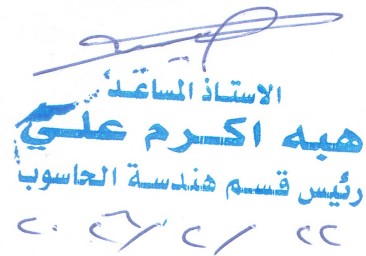 الاستاذ المساعد
هبه اكرم علي
رئيس قسم هندسة الحاسوب
٢٠٢٦/٢/٢٢